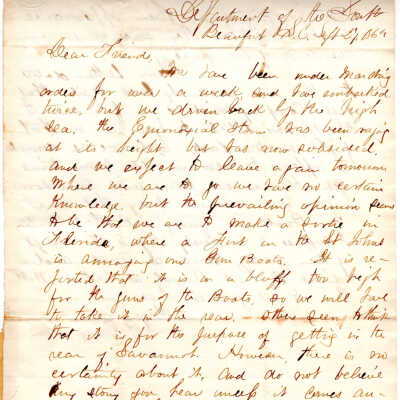 Department of the South
Beaufort S.C. Sept 27, 186
Dear Friends,
We have been under marching
orders for over a week, and have embarked
twice, but were driven back by the high
sea. the Equinoxial Storm has been raging
at its height but has now subsided
and we expect to leave again tomorrow
Where we are to go we have no certain
Knowledge, but the prevailing opinion seems
to be that we are to make a sortie in
Florida, where a Fort on the St Johns
is annoying our Gun Boats. It is re-
ported that it is on a bluff too high
for the guns of the Boats, so we will have
to take it in the rear. – others seem to think
that it is for the purpose of getting in the
rear of Savannah. However, there is no
certainty about it, and do not believe
any story you hear unless it comes an-